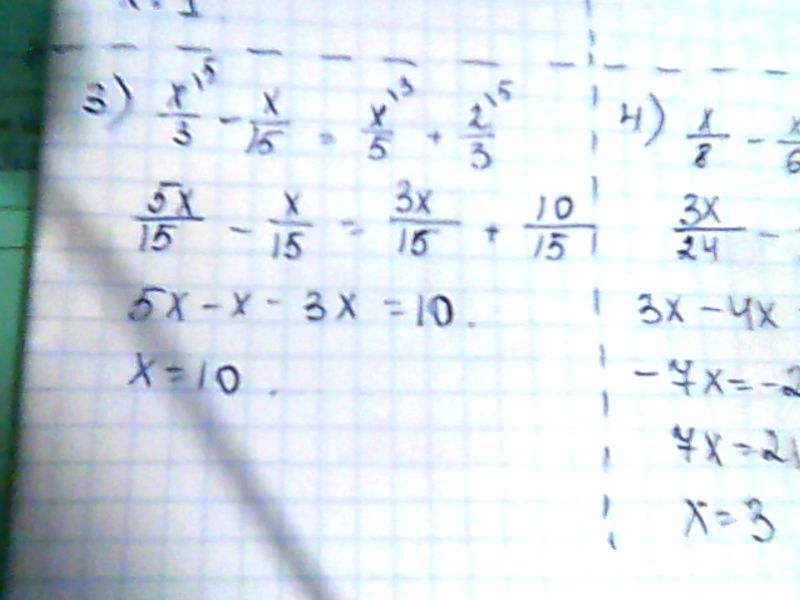 3) x/3 ^5 - x/15 = x/5 ^3 + 2/3 ^5
5x/15 - x/15 = 3x/15 + 10/15
5x - x - 3x = 10.
x = 10.
4) x/8 -
3x/24 -
3x - 4x
-7x = -2
7x = 21
x = 3